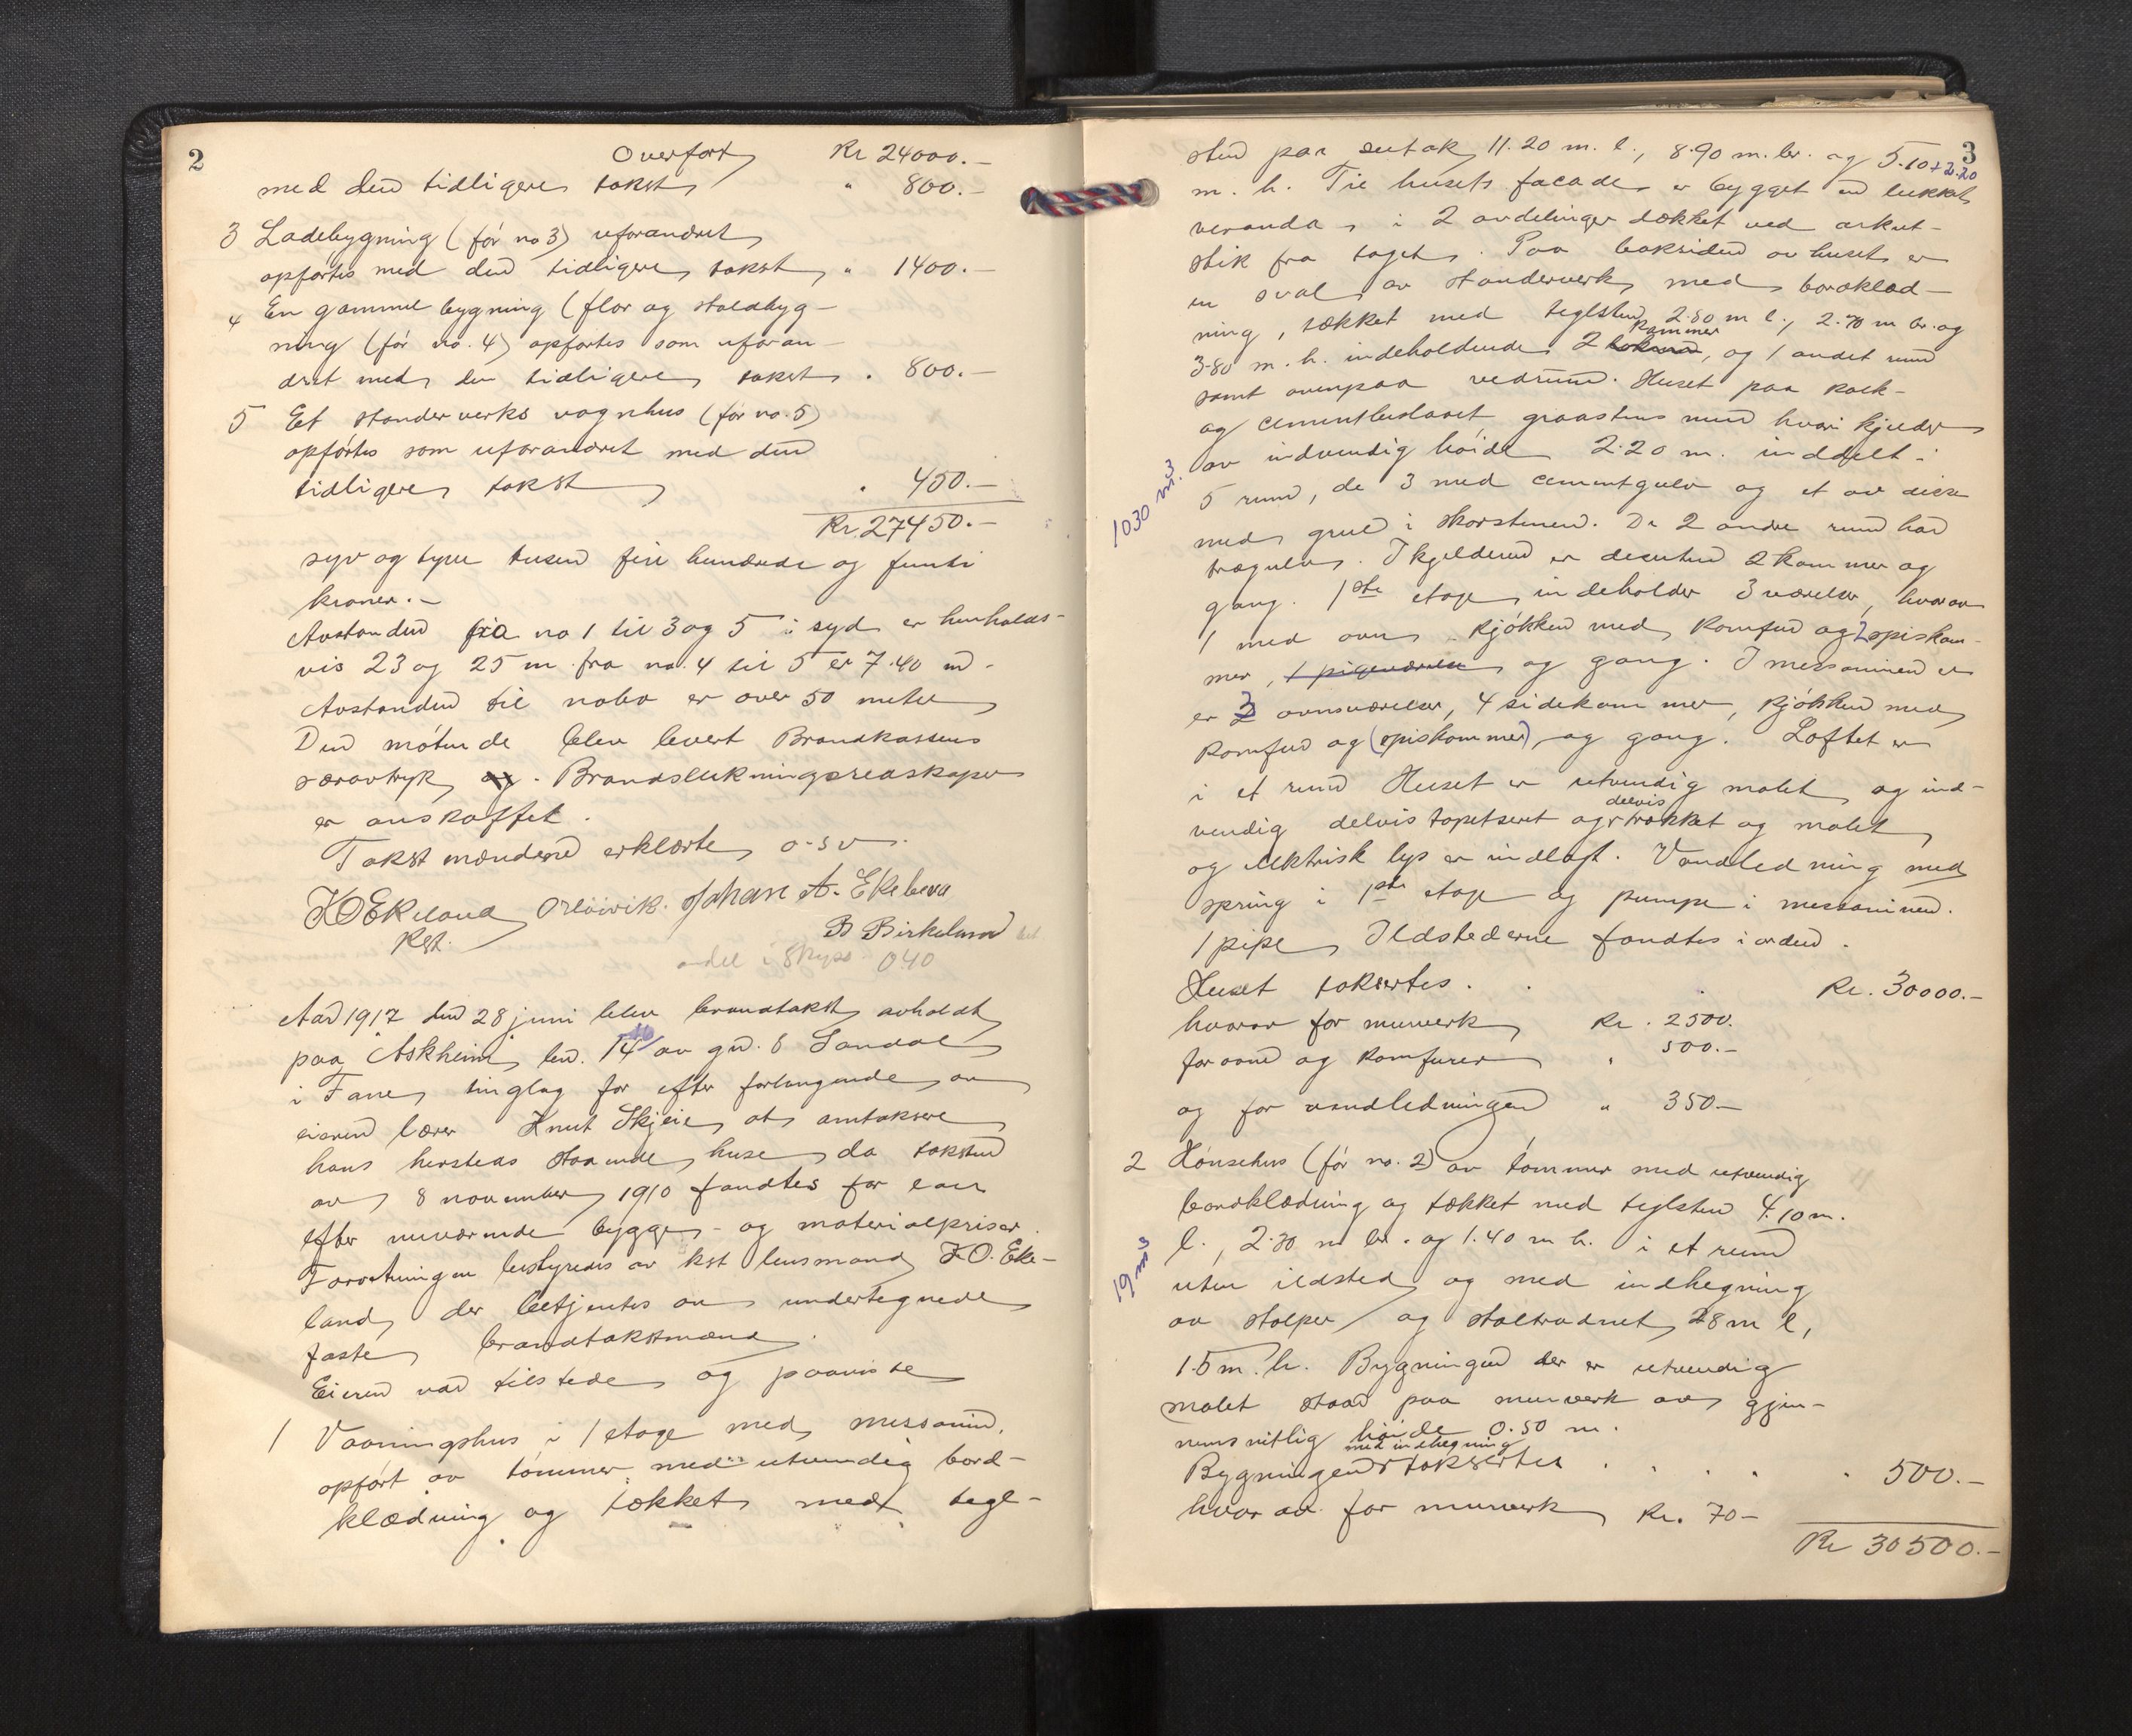 2
Overført Kr 24000.-
med den tidligere takst " 800.-
3 Ladebygning (før no 3) uforandret
opførtes med den tidligere takst " 1400.-
4 En gammel bygning (flor og staldbyg-
ning (før no. 4) opførtes som uforan-
dret med den tidligere takst " 800.-
5 Et standerverks vognhus (før no. 5)
opførtes som uforandret med den
tidligere takst " 450.-
Kr. 27450.-
syv og tyve tusen fire hundrede og femti
kroner.-
Avstanden fra no 1 til 3 og 5 i syd er henholds-
vis 23 og 25 m. fra no. 4 til 5 er 7.40 m.
Avstanden til nabo er over 50 meter
Den møtende blev levert Brandkassens
særavtryk og. Brandslukningsredskaper
er anskaffet.
Takstmændene erklærte o.s.v.
K O Ekeland O Løivik. Johan A. Ekeberg
Kst. B Birkeland
andel i 040
Aar 1917 den 28 juni blev brandtakst avholdt
paa Askheim bn. 14 av gn. 6 Sandal
i Fane tinglag for efter forlangende av
eieren lærer Knut Skjeie at omtaksere
hans hersteds staaende huse da taksten
av 8 november 1910 fandtes for lav
efter nuværende bygge- og materialpriser.
Forretningen bestyredes av kst lensmand K.O. Eke-
land, der betjentes av undertegnede
faste brandtakstmænd.
Eieren var tilstede og paaviste
1 Vaaningshus i 1 etage med messanin,
opført av tømmer med utvendig bord-
klædning og tækket med tegl-
3
sten paa sutak 11.20 m. l., 8.90 m. br. og 5.10 + 2.20
m. h. Til husets facade er bygget en lukket
veranda i 2 avdelinger dækket ved arkut-
stik fra taget. Paa baksiden av huset er
en sval av standerverk med bordklæd-
ning, tækket med teglsten 2.80 m l., 2.70 m br. og
kammer
3.80 m. h. indeholdende 2 , og 1 andet rum
samt ovenpaa vedrum. Huset paa kalk-
og cementbeslaaet graastens mur hvori kjelder
av indvendig høide 2.20 m. inddelt i
1030 m.3
5 rum, de 3 med cementgulv og et av disse
med grue i skorstenen. De 2 andre rum har
trægulv. I kjelderen er desuten 2 kammer og
gang. 1ste etage indeholder 3 værelser, hvorav
1 med ovn, kjøkken med komfur og 2 spiskam-
mer, 1 pigeværelse og gang. I messaninen er
er 3 ovnsværelser, 4 sidekammer, kjøkken med
komfur og (spiskammer), og gang. Loftet er
i et rum Huset er utvendig malet og ind-
delvis
vendig delvis tapetseret og strækket og malet
og elektrisk lys er indlagt. Vandledning med
spring i 1ste etage og pumpe i messaninen.
1 pipe, Ildstederne fandtes i orden.
Huset takseertes . . . Kr. 30000.-
hvorav for murverk Kr. 2500.
for ovne og komfurer " 500.-
og for vandledningen " 350.-
2 Hønsehus (før no. 2) av tømmer med utvendig
bordklædning og tækket med teglsten 4.10 m.
l., 2.30 m br. og 1.40 m h. i et rum
19 m3
uten ildsted og med indhegning
av stolper og staltraadnet, 28 m l,
1.5 m. h. Bygningen der er utvendig
malet staar paa murverk av gjen-
nemsnitlig høide 0.50 m.
med indhegning
Bygningen taksertes . . . . . 500.-
hvorav for murverk Kr. 70-
Kr 30500.-